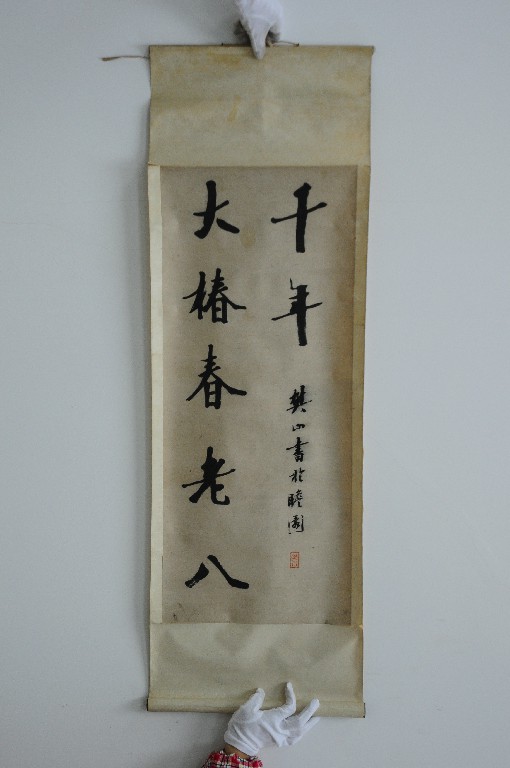 大椿春老八
千年
樊山書於瞻園